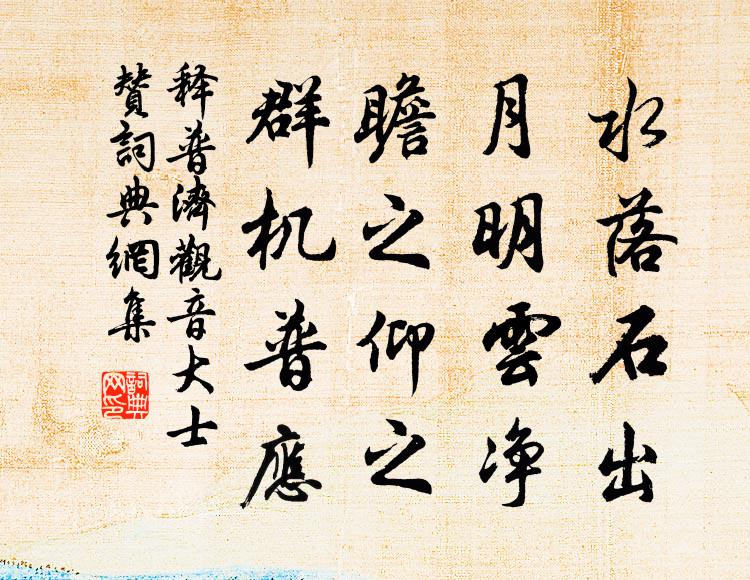 水落石出
月明雲净
瞻之仰之
群机普應
释普濟觀音大士
賛詞典網集
詞典
网印